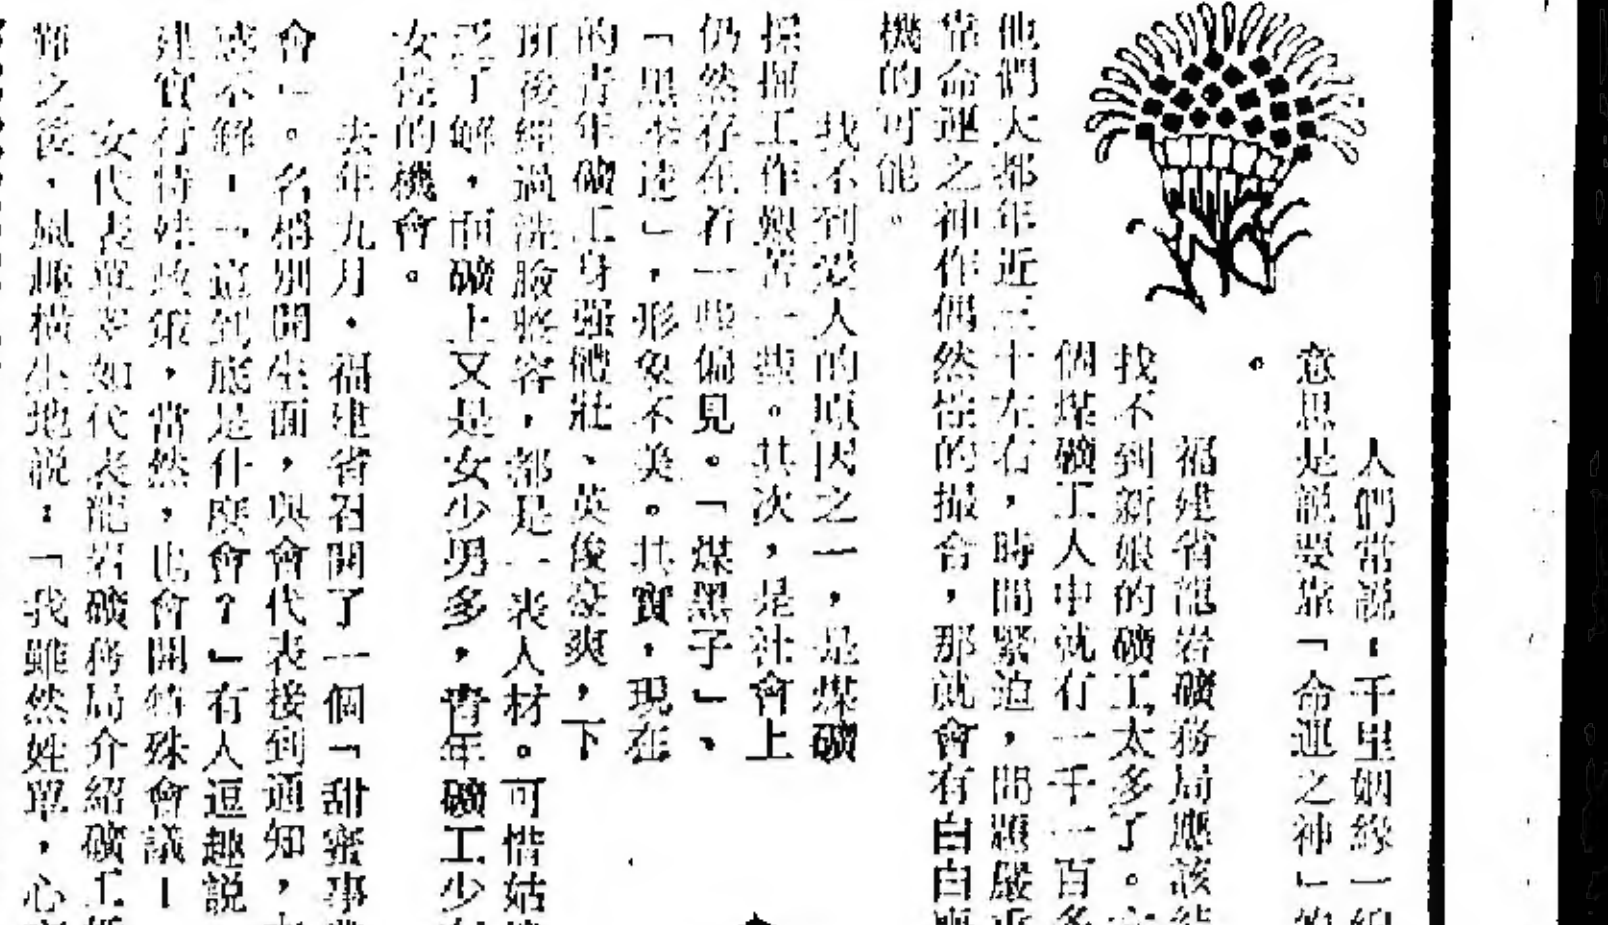 人們常説：千里姻緣一線
意思是説要靠「命運之神」的
。
福建省龍岩礦務局應該結
找不到新娘的礦工太多了。
個煤礦工人中就有一千一百多
他們大都年近三十左右，時間緊迫，問題嚴重
靠命運之神作偶然性的撮合，那就會有白白
機的可能。
我不到愛人的原因之一，是煤礦
採掘工作艱苦一些。其次，是社會上
仍然存在着一些偏見。「煤黑子」、
「黑李逵」，形象不美。其實，現在
的青年礦工身强體壯、英俊豪爽，下
班後經過洗臉整容，都是一表人材。可惜姑
乏了解，而礦上又是女少男多，青年礦工少
女性的機會。
去年九月，福建省召開了一個「甜蜜事
會」。名稱別開生面，與會代表接到通知，
惑不解，「這到底是什麽會？」有人逗趣説
建實行特殊政策，當然，也會開特殊會議！
女代表單翠如代表龍岩礦務局介紹礦工
節之後，風趣橫生地説：「我雖然姓單，心